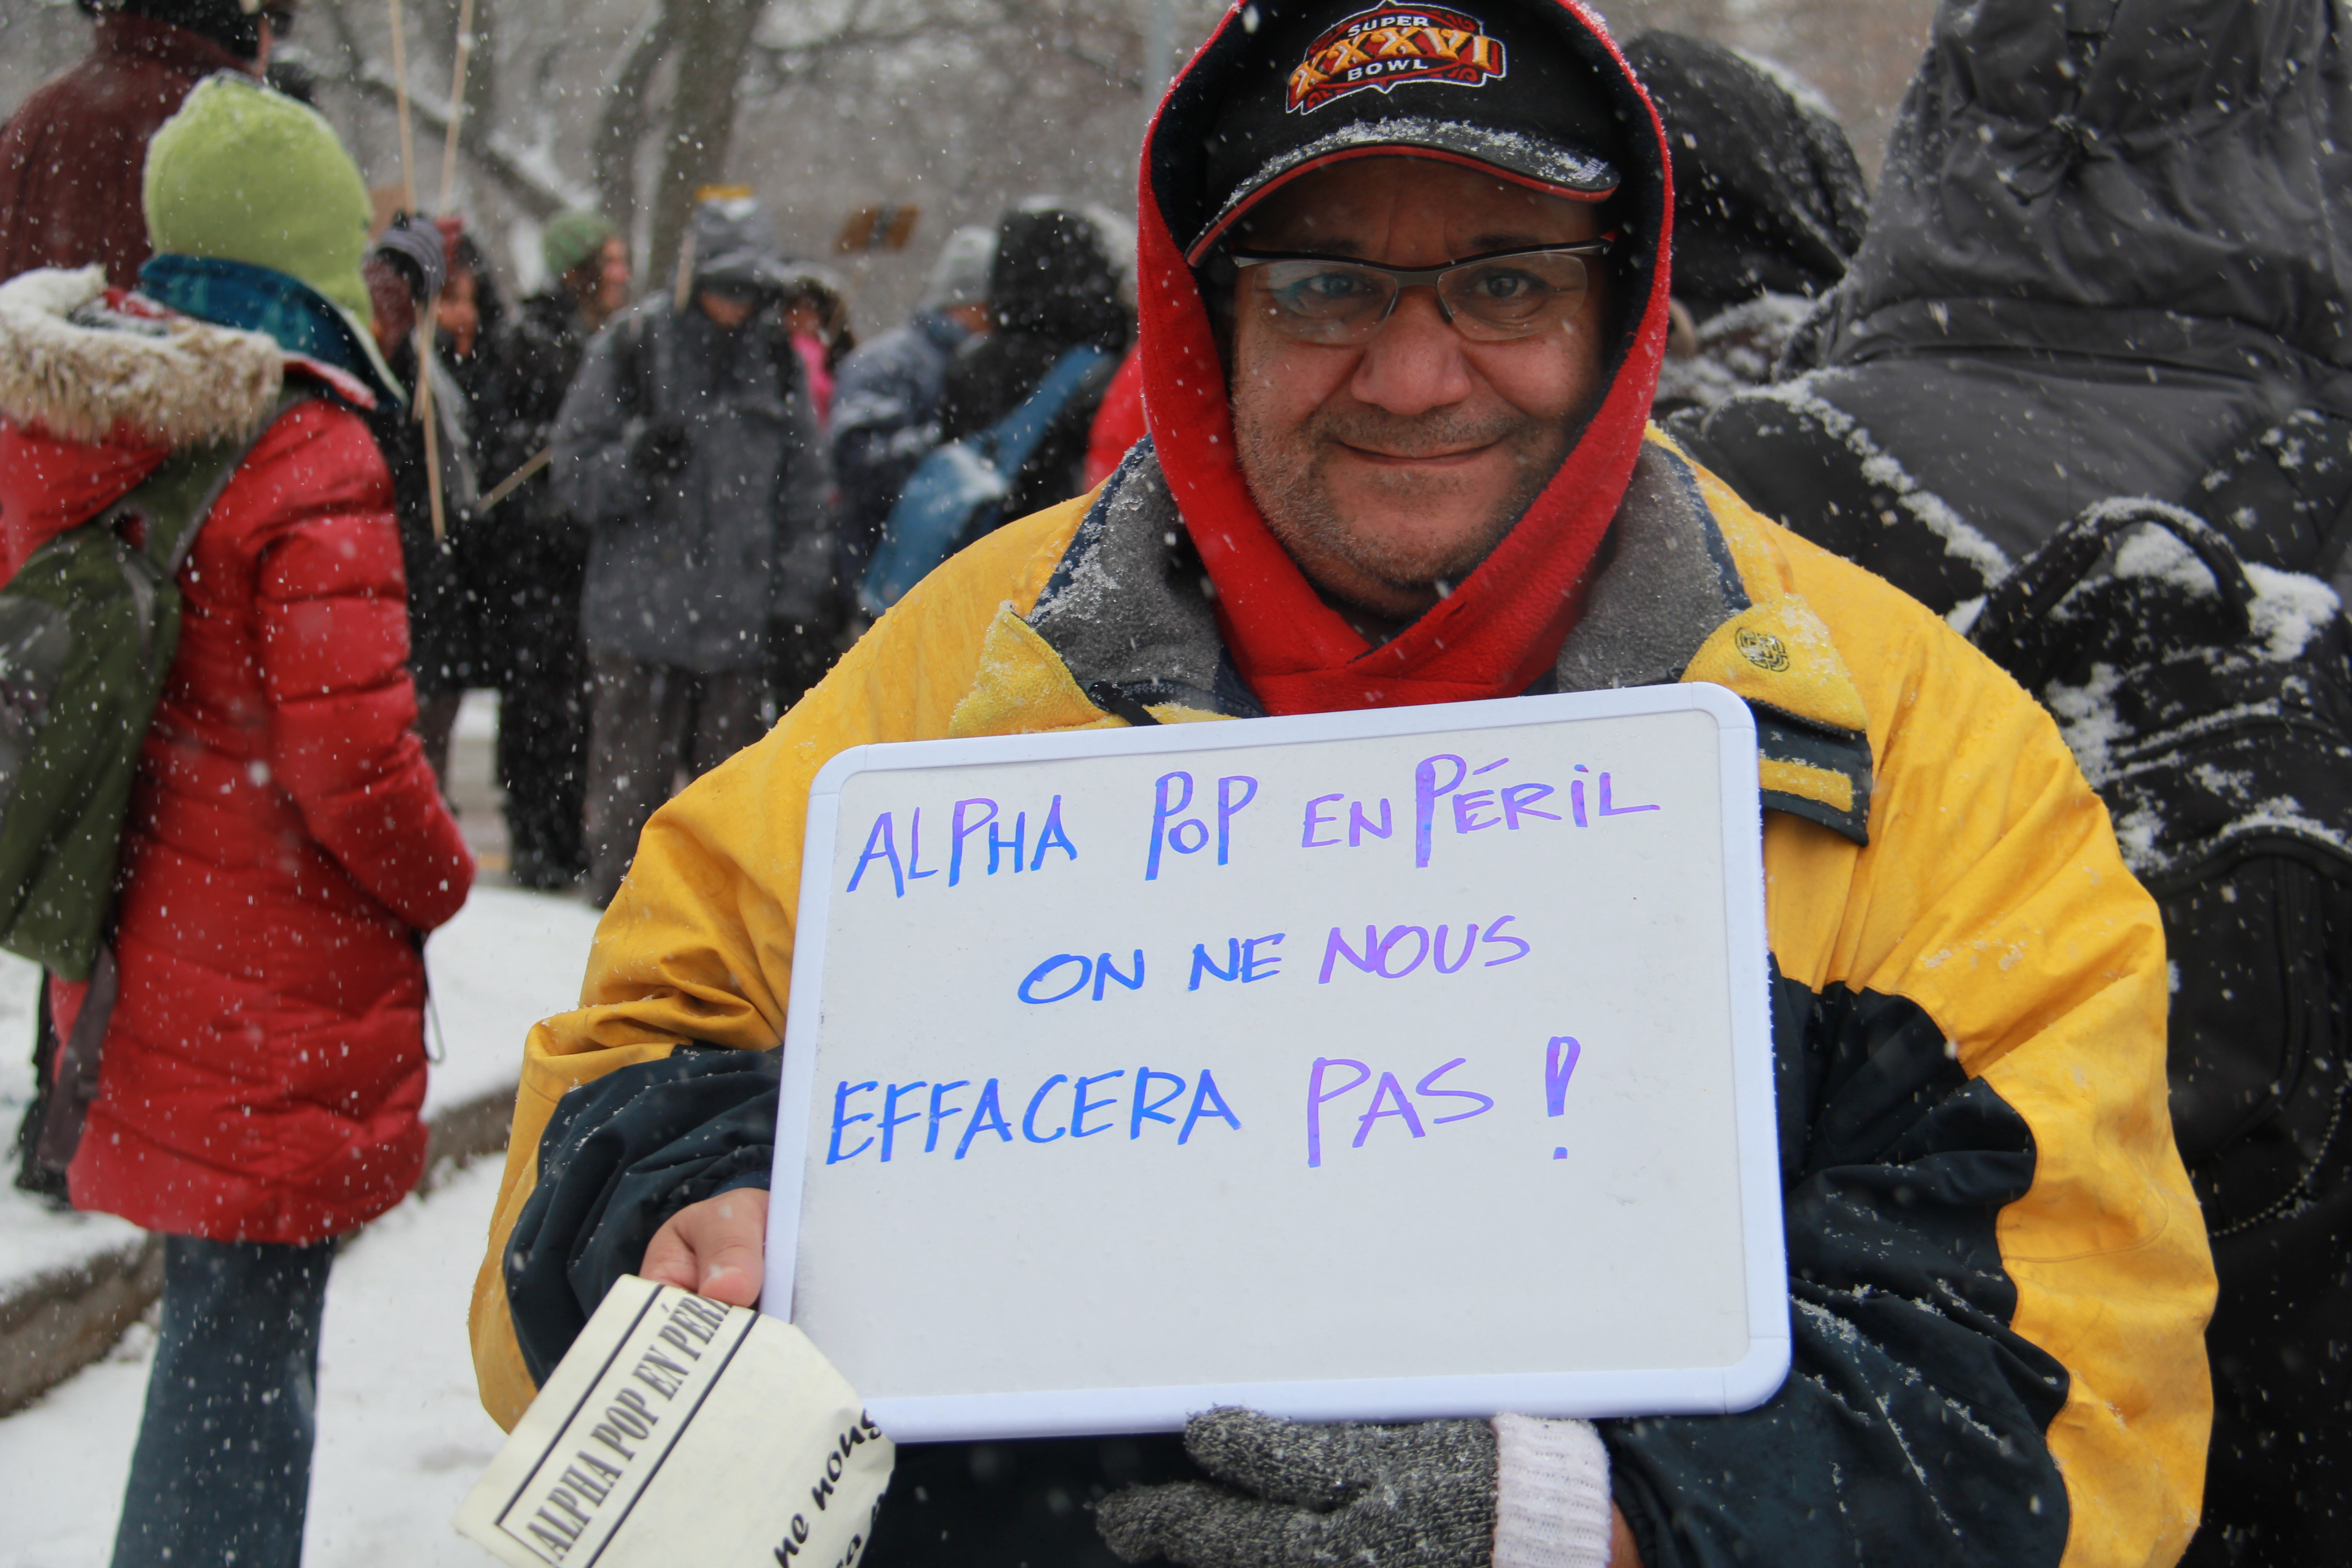 SUPER
XXXVI
BOWL
ALPHA POP EN PÉRIL
ON NE NOUS
EFFACERA PAS !
ALPHA POP EN
ne nous